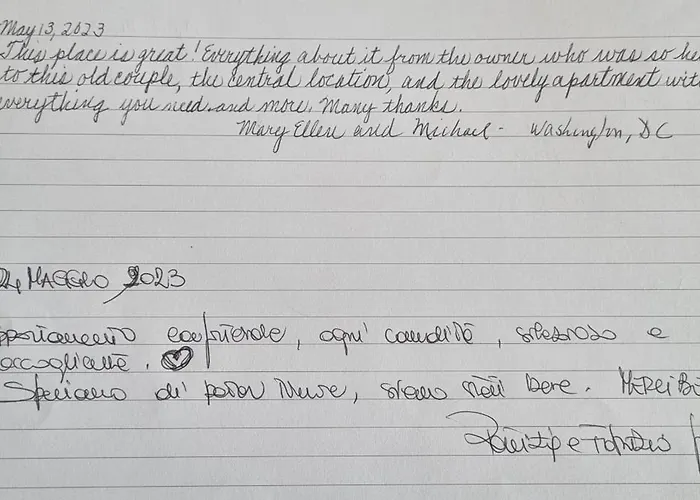 May 13, 2023
This place is great! Everything about it from the owner who was so he
to this old couple, the central location, and the lovely apartment wit
everything you need and more. Many thanks.
Mary Ellen and Michael - Washington, DC
24 MAGGIO 2023
ppartamento confortevole, ogni comodità, spazioso e
accogliente.
Speriamo di poter tornare, siamo stati bene. MERCI B